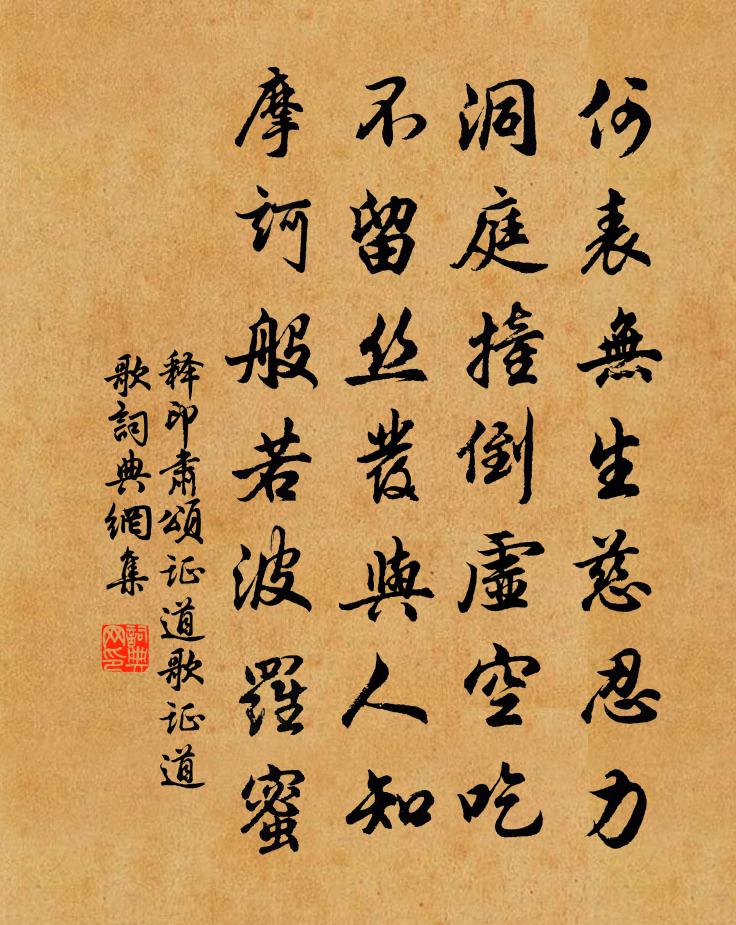 何表無生慈忍力
洞庭撞倒虛空吃
不留丝發與人知
摩訶般若波羅蜜
释印肅頌证道歌证道
歌詞典網集
詞典
网印